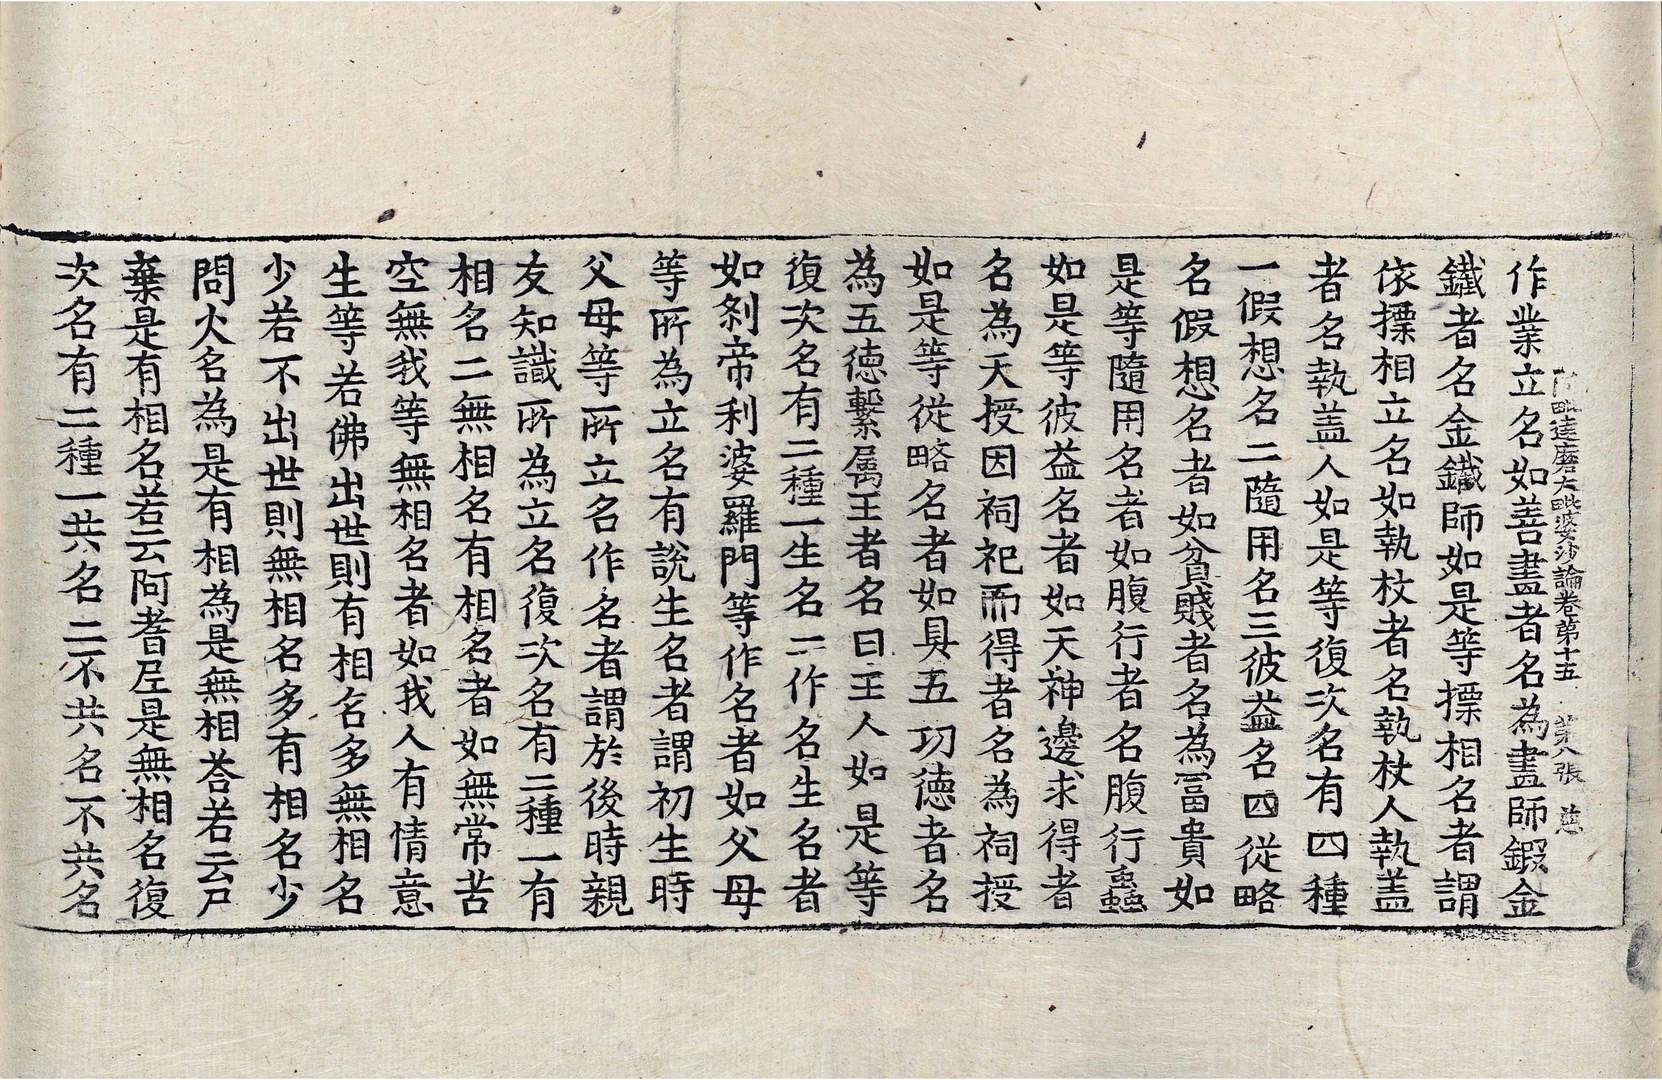 阿毗達磨大毗婆沙論卷第十五 第八張 慈
作業立名如善畫者名為畫師鍛金
鐵者名金鐵師如是等摽相名者謂
依摽相立名如執杖者名執杖人執盖
者名執盖人如是等復次名有四種
一假想名二隨用名三彼益名四從略
名假想名者如貧賤者名為冨貴如
是等隨用名者如腹行者名腹行蟲
如是等彼益名者如天神邊求得者
名為天授因祠祀而得者名為祠授
如是等從略名者如具五功德者名
為五德繫属王者名曰王人如是等
復次名有二種一生名二作名生名者
如刹帝利婆羅門等作名者如父母
等所為立名有說生名者謂初生時
父母等所立名作名者謂於後時親
友知識所為立名復次名有二種一有
相名二無相名有相名者如無常苦
空無我等無相名者如我人有情意
生等若佛出世則有相名多無相名
少若不出世則無相名多有相名少
問火名為是有相為是無相荅若云尸
棄是有相名若云阿耆尼是無相名復
次名有二種一共名二不共名不共名